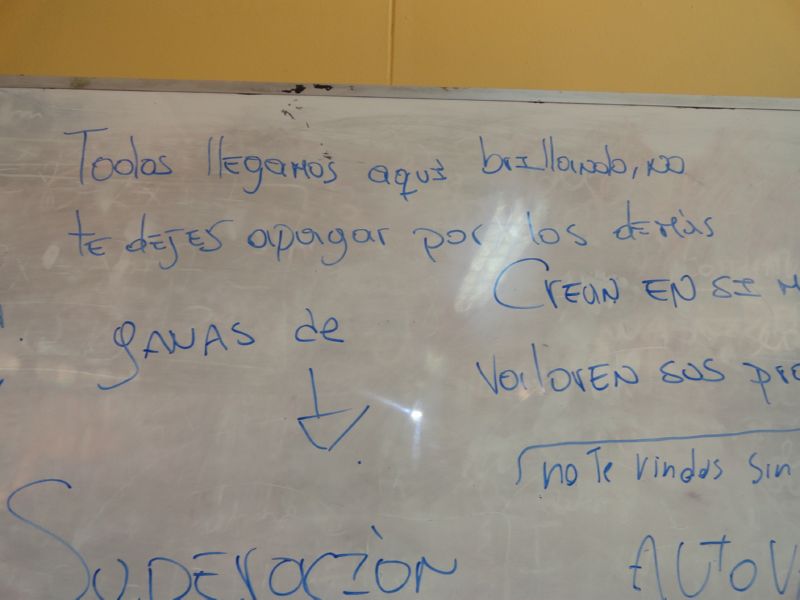 Todos llegamos aquí brillando, no
te dejes apagar por los demás
Crean EN SI
gANAS de
valoren sus
no Te rindas sin
SUPERACIÓN